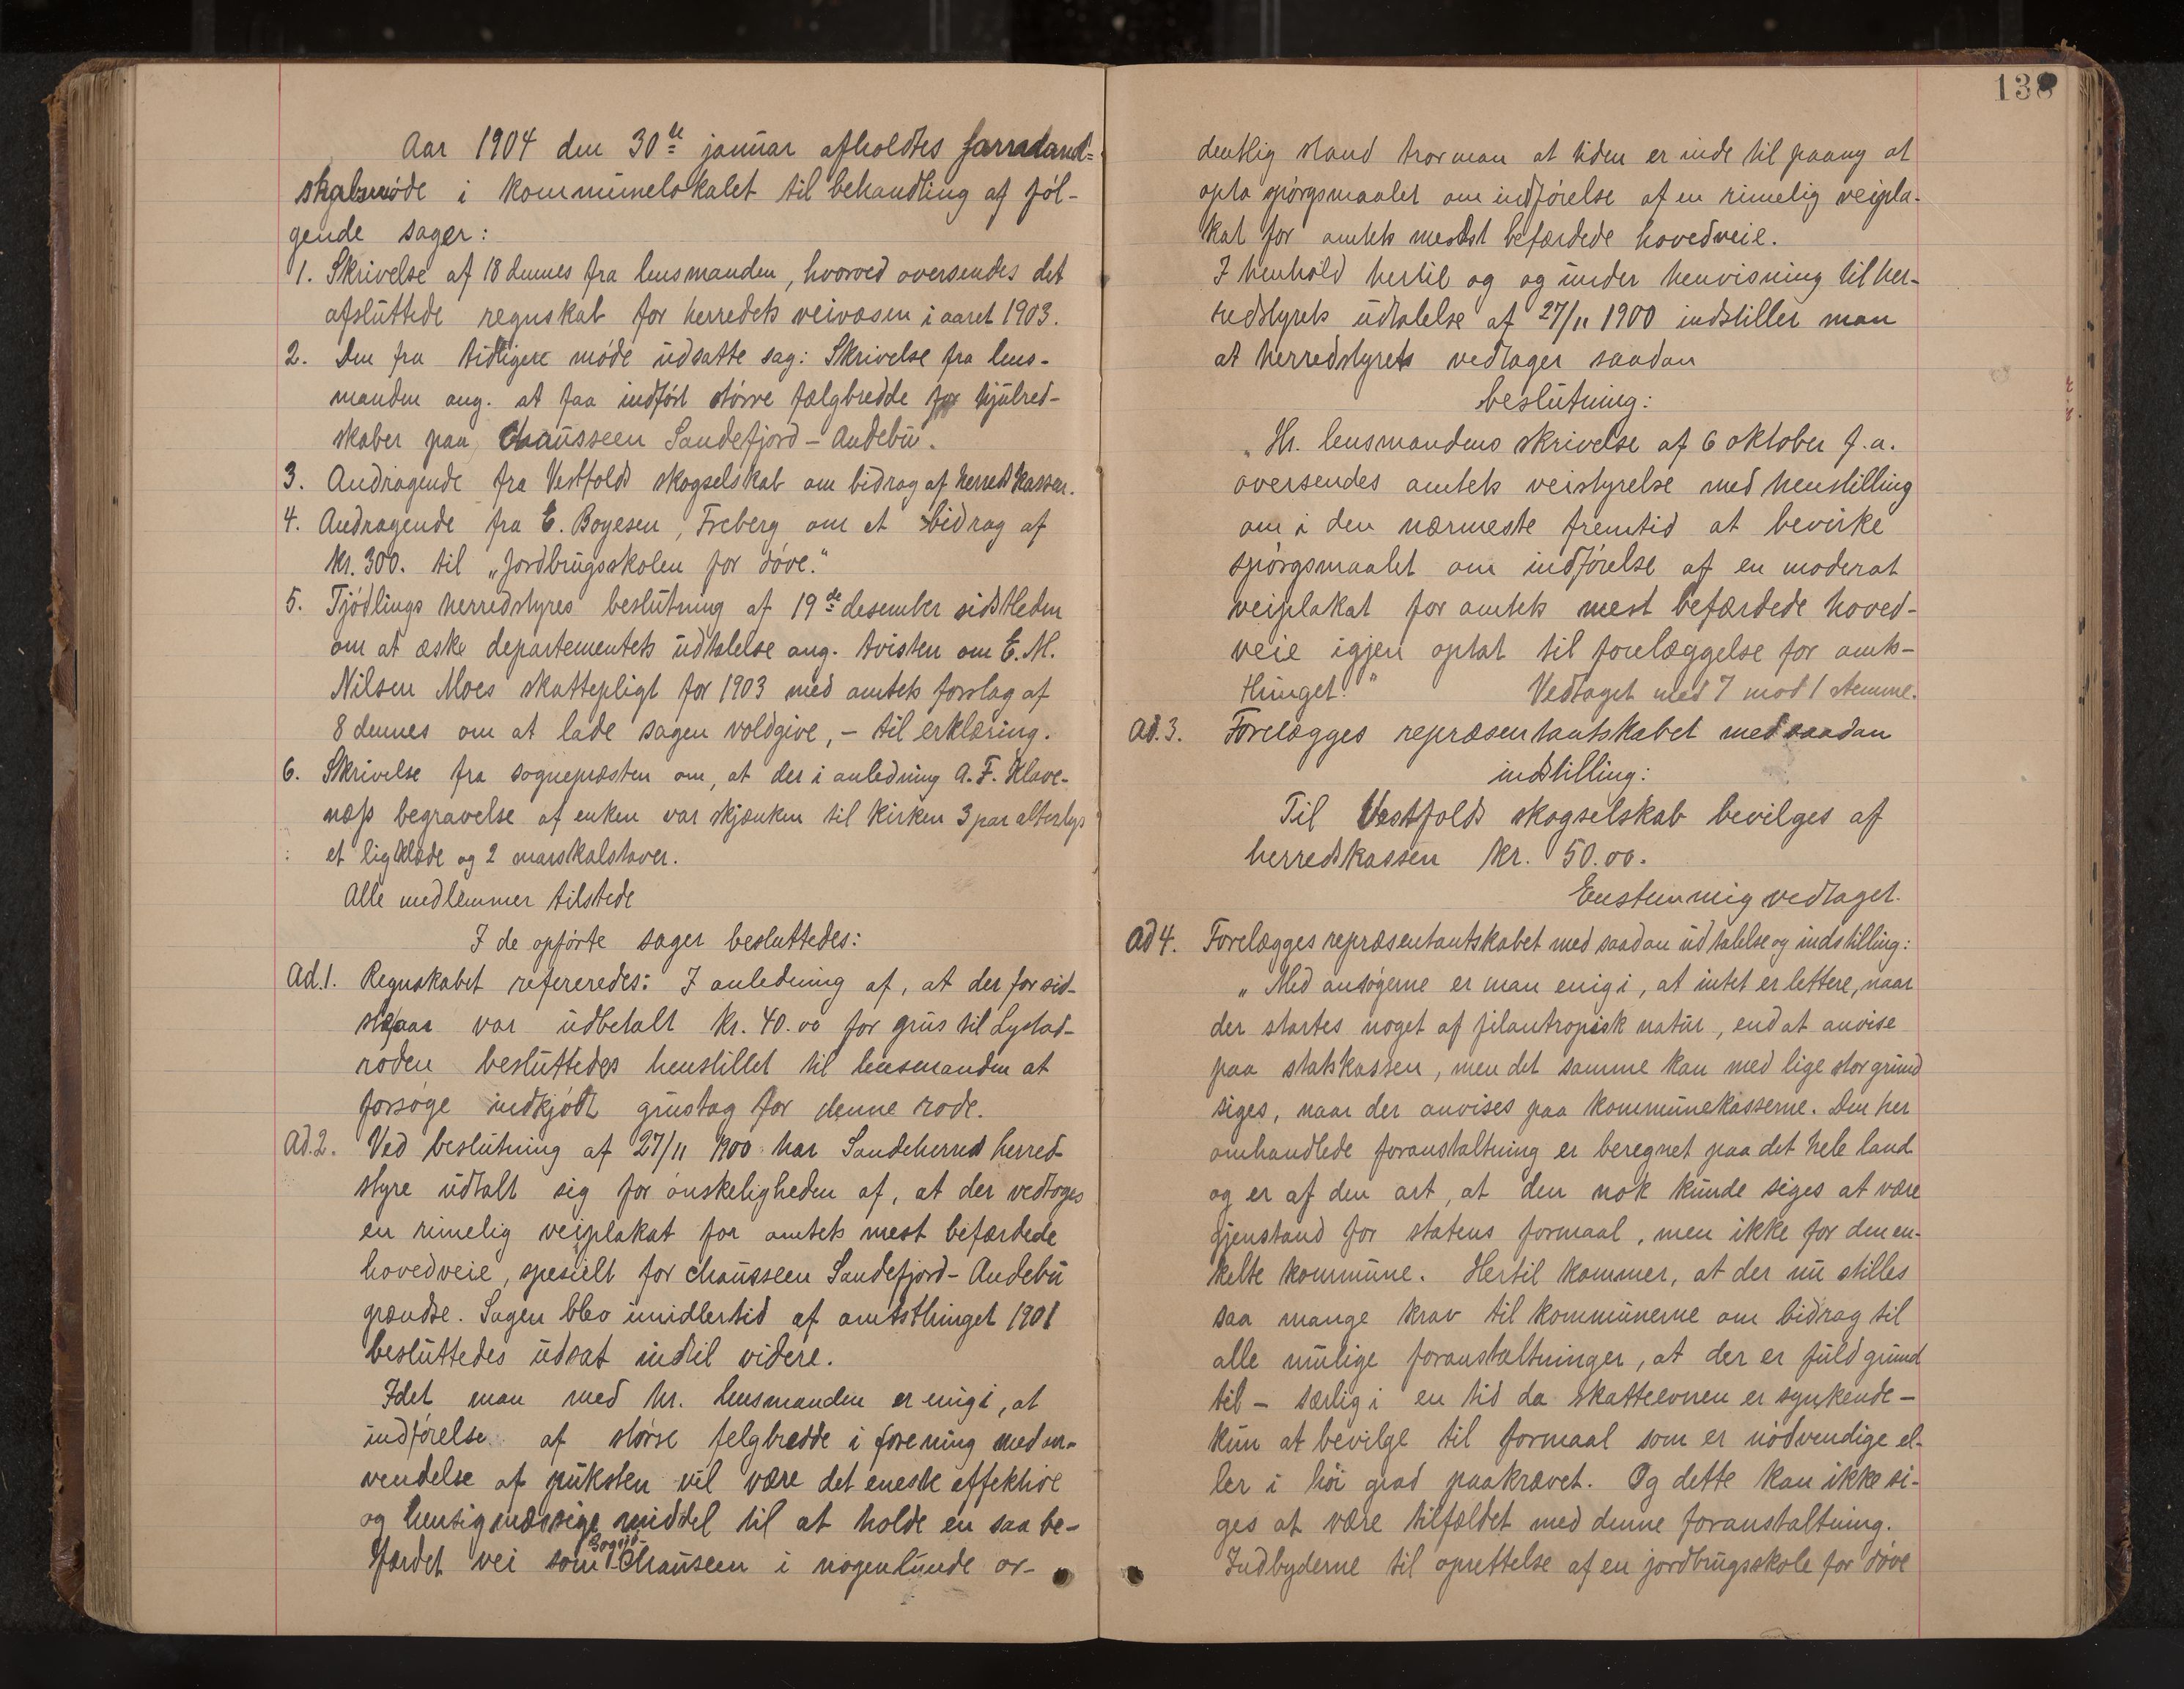 Aar 1904 den 30te januar afholdtes formand-
skabsmøde i kommunelokalet til behandling af føl-
gende sager:
1. Skrivelse af 18 dennes fra lensmanden, hvorved oversendes det
afsluttede regnskab for herredets veivæsen i aaret 1903.
2. Den fra tidligere møde udsatte sag: Skrivelse fra lens-
manden ang. at faa indført større fælgbredde for hjulred-
skaber paa Chausseen Sandefjord - Andebu.
3. Andragende fra Vestfolds skogselskab om bidrag af herredskassen.
4. Andragende fra E. Boyesen, Freberg om et bidrag af
kr. 300. til „Jordbrugsskolen for døve."
5. Tjødlings herredstyres beslutning af 19de desember sidstleden
om at æske departementets udtalelse ang. tvisten om E. M.
Nilsen Moes skattepligt for 1903 med amtets forslag af
8 dennes om at lade sagen voldgive, - til erklæring.
6. Skrivelse fra sognepræsten om, at der i anledning A. F. Klave-
næss begravelse af enken var skjænken til kirken 3 par alterlys
et ligklæde og 2 marskalstaver.
Alle medlemmer tilstede
I de opførte sager besluttedes:
Ad. 1. Regnskabet refereredes: I anledning af, at der for sid-
ste aar var udbetalt kr. 40.00 for grus til Lystad-
roden besluttedes henstillet til lensmanden at
forsøge indkjøbt grustag for denne rode.
Ad. 2. Ved beslutning af 27/11 1900 har Sandeherred herred-
styre udtalt sig for ønskeligheden af, at der vedtoges
en rimelig veiplakat for amtets mest befærdede
hovedveie, spesielt for chausseen Sandefjord - Andebu
grændse. Sagen blev imidlertid af amtsthinget 1901
besluttedes udsat indtil videre.
Idet man med hr. lensmanden er enig i, at
indførelse af større felgbredde i forening med an-
vendelse af puksten vil være det eneste effektive
og hensigmæssige middel til at holde en saa be-
færdet vei som Chauseen i nogenlunde or-
138
dentlig stand tror man at tiden er inde til paany at
opta spørgsmaalet om indførelse af en rimelig veipla-
kat for amtets mest befærdede hovedveie.
I henhold hertil og og under henvisning til her-
redstyrets udtalelse af 27/11 1900 indstiller man
at herredstyrets vedtager saadan
beslutning:
„Hr. lensmandens skrivelse af 6 oktober f.a.
oversendes amtets veistyrelse med henstilling
om i den nærmeste fremtid at bevirke
spørgsmaalet om indførelse af en moderat
veiplakat for amtets mest befærdede hoved-
veie igjen optat til forelæggelse for amts-
thinget." Vedtaget med 7 mod 1 stemme.
Ad. 3. Forelægges repræsentantskabet med saadan
indstilling:
Til Vestfolds skogselskab bevilges af
herredskassen kr. 50.00.
Enstemmig vedtaget.
Ad 4. Forelægges repræsentantskabet med saadan udtalelse og indstilling:
„Med ansøgerne er man enig i, at intet er lettere, naar
der startes noget af filantropisk natur, end at anvise
paa statskassen, men det samme kan med lige stor grund
siges, naar der anvises paa kommunekasserne. Den her
omhandlede foranstaltning er beregnet paa det hele land
og er af den art, at den nok kunde siges at være
gjenstand for statens formaal, men ikke for den en-
kelte kommune. Hertil kommer, at der nu stilles
saa mange krav til kommunerne om bidrag til
alle mulige foranstaltninger, at der er fuld grund
til - særlig i en tid da skatteevnen er synkende -
kun at bevilge til formaal som er nødvendige el-
ler i høi grad paakrævet. Og dette kan ikke si-
ges at være tilfældet med denne foranstaltning.
Indbyderne til oprettelse af en jordbrugsskole for døve